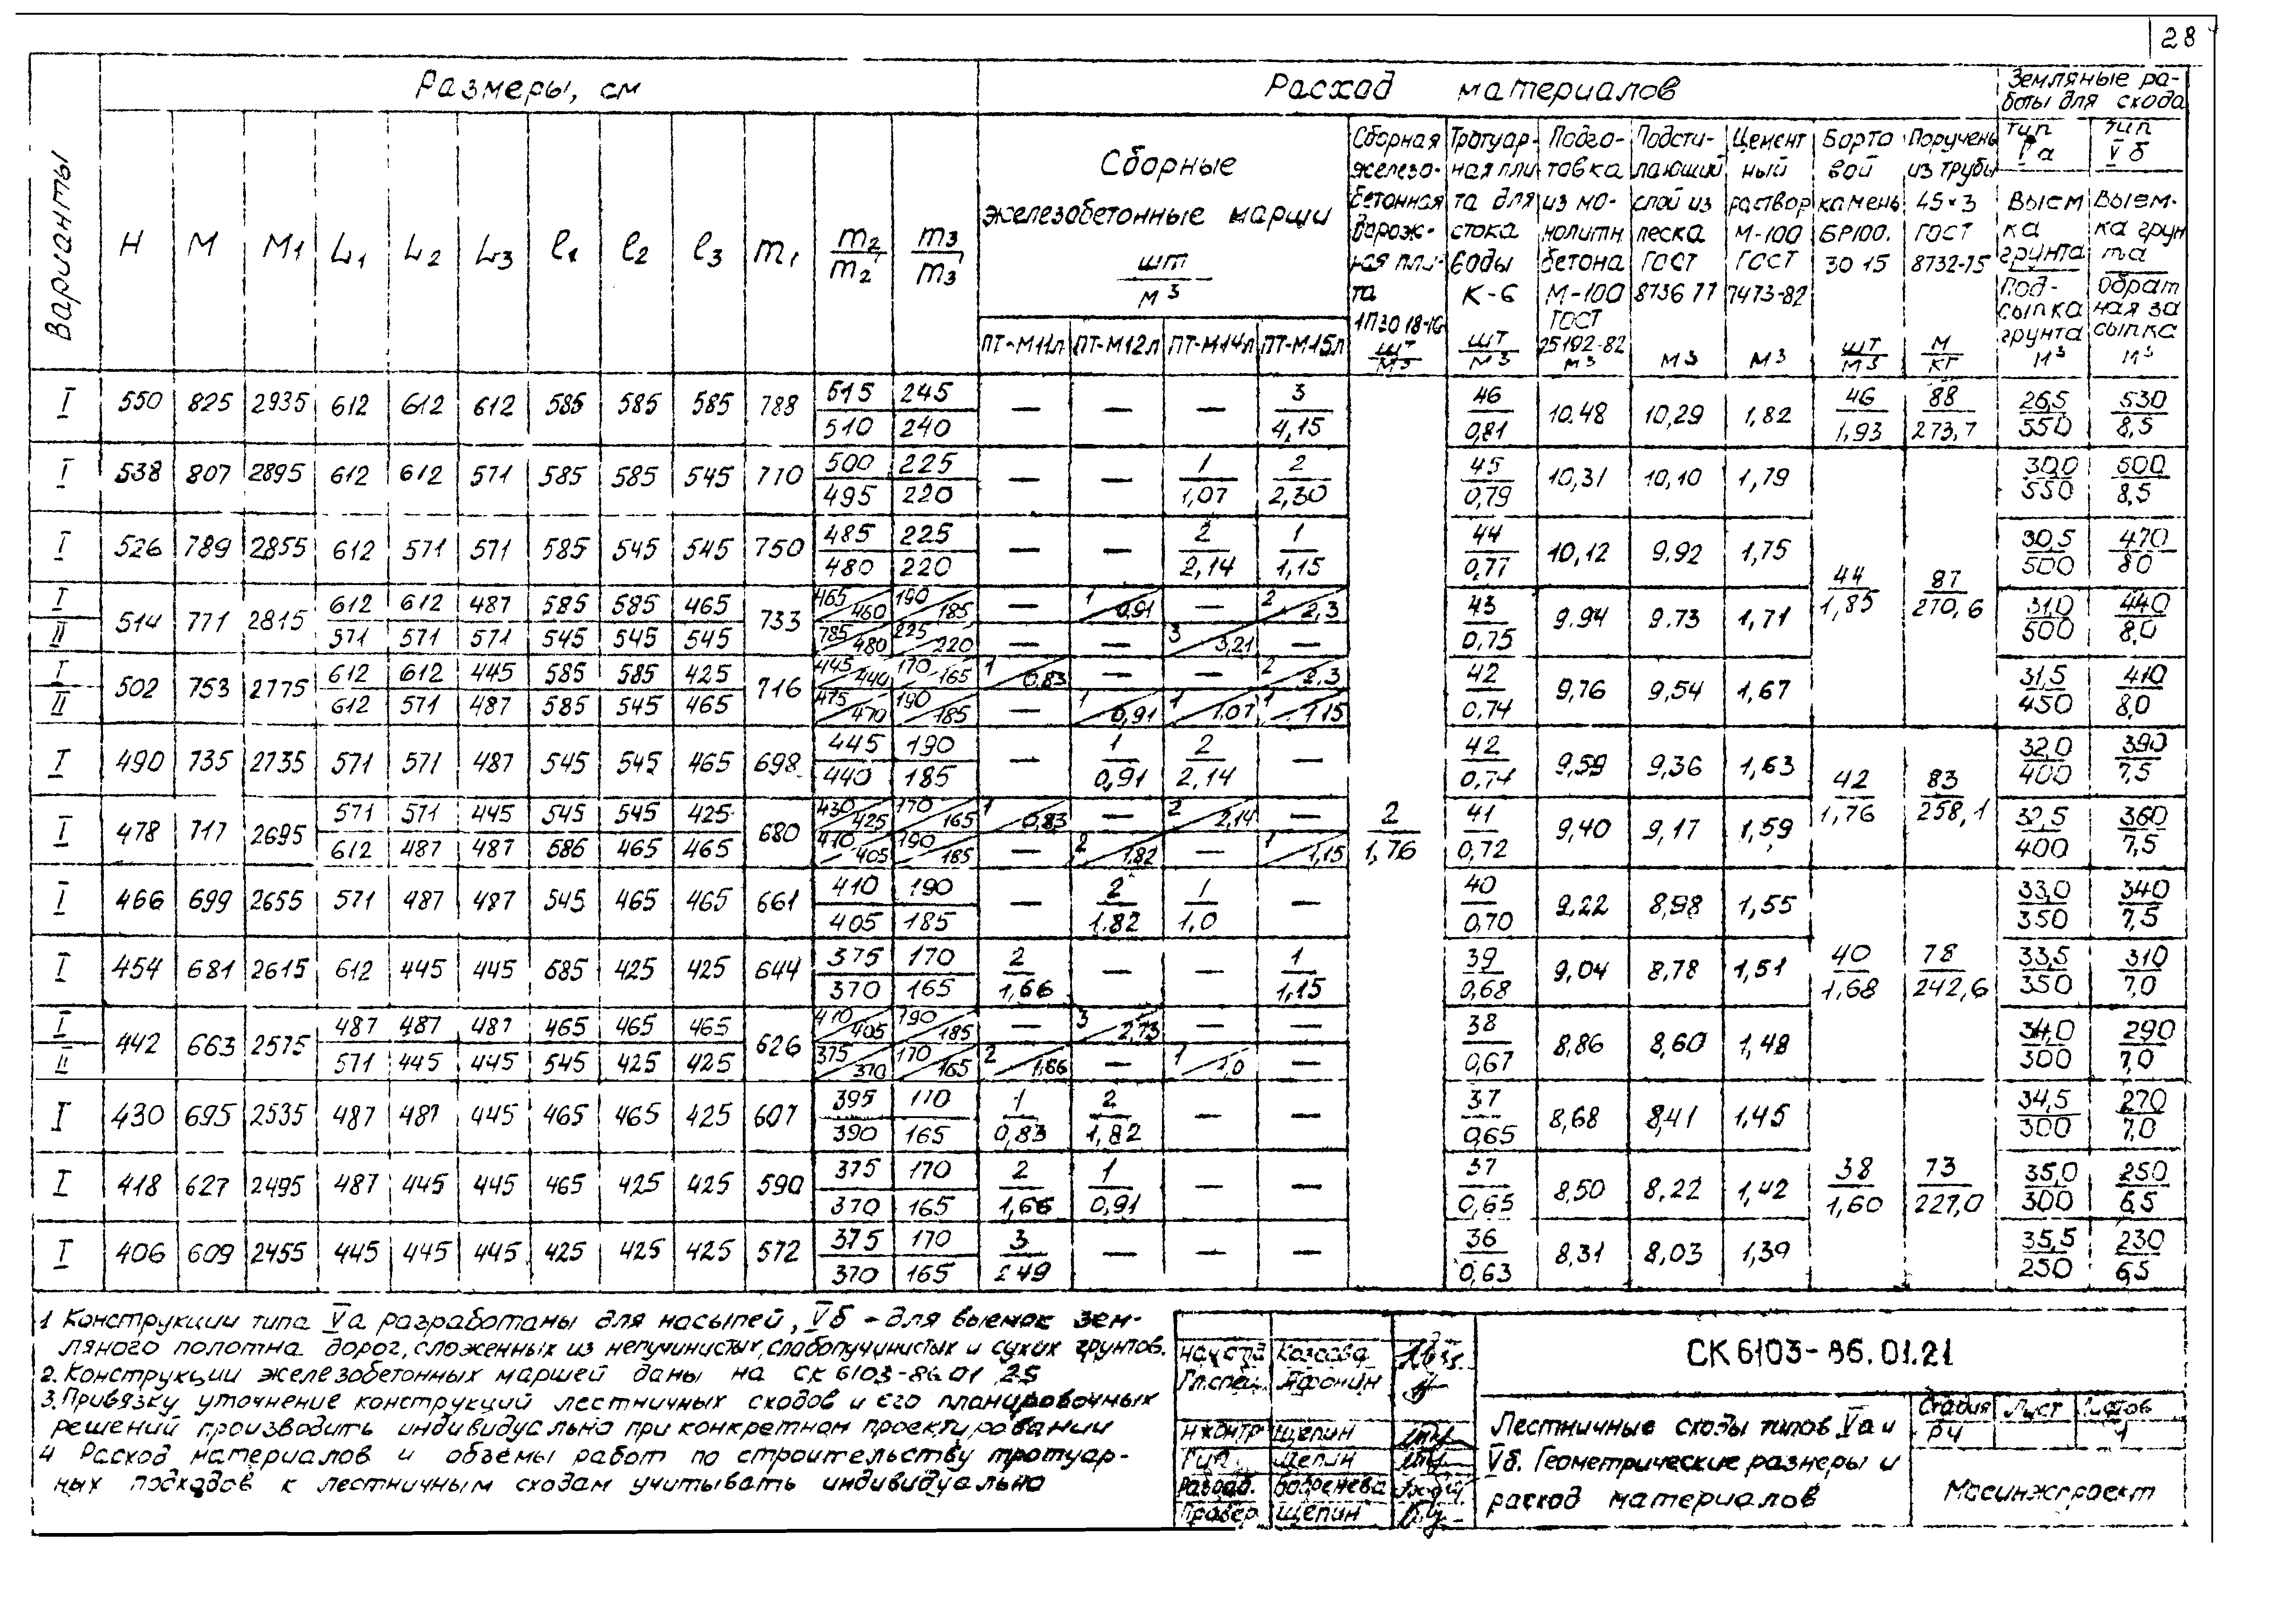 28
Размеры, см
Расход материалов
Земляные ра-
боты для схода
Варианты
H M M1 L1 L2 L3 l1 l2 l3 m1 m2/m2' m3/m3'
Сборные
железобетонные марши
шт/м3
ПТ-М11л ПТ-М12л ПТ-М14л ПТ-М15л
Сборная
железо-
бетонная
дорож-
ная пли-
та
1П30 18-16
шт/м3
Тротуар-
ная пли
та для
стока
воды
К-6
шт/м3
Подго-
товка
из мо-
нолитн
бетона
М-100
ГОСТ
25192-82
м3
Подсти-
лающий
слой из
песка
ГОСТ
8736 77
м3
Цемент
ный
раствор
М-100
ГОСТ
7473-82
м3
Борто
вой
камень
БР100.
30 15
шт/м3
Поручень
из трубы
45×3
ГОСТ
8732-75
м/кг
тип
Vа
Выем
ка
грунта
Под-
сыпка
грунта
м3
тип
Vб
Выем-
ка грун
та
Обрат
ная за
сыпка
м3
I 550 825 2935 612 612 612 585 585 585 788 515/510 245/240 — — — 3/4,15 46/0,81 10.48 10,29 1,82 46/1,93 88/273,7 26,5/550 530/8,5
I 538 807 2895 612 612 571 585 585 545 770 500/495 225/220 — — 1/1,07 2/2,30 45/0,79 10,31 10,10 1,79 30,0/550 500/8,5
I 526 789 2855 612 571 571 585 545 545 750 485/480 225/220 — — 2/2,14 1/1,15 44/0,77 10,12 9,92 1,75 44/1,85 87/270,6 30,5/500 470/80
I 514 771 2815 612 612 487 585 585 465 733 465/460 190/185 — 1/0,91 — 2/2,3 43/0,75 9.94 9.73 1,71 31,0/500 440/8,0
II 571 571 571 545 545 545 785/480 225/220 — — 3/3,21 —
I 502 753 2775 612 612 445 585 585 425 716 445/440 170/165 1/0,83 — — 2/2,3 42/0.74 9,76 9,54 1,67 31,5/450 410/8,0
II 612 571 487 585 545 465 475/470 190/185 — 1/0,91 1/1.07 1/1,15
I 490 735 2735 571 571 487 545 545 465 698 445/440 190/185 — 1/0,91 2/2,14 — 42/0,74 9,59 9,36 1,63 42/1,76 83/258,1 32,0/400 390/7,5
I 478 717 2695 571 571 445 545 545 425 680 430/425 170/165 1/0,83 — 2/2,14 — 2/1,76 41/0,72 9,40 9,17 1,59 32,5/400 360/7,5
612 487 487 586 465 465 410/405 190/185 — 2/1,82 — 1/1,15
I 466 699 2655 571 487 487 545 465 465 661 410/405 190/185 — 2/1.82 1/1,0 — 40/0,70 9,22 8,98 1,55 33,0/350 340/7,5
I 454 681 2615 612 445 445 585 425 425 644 375/370 170/165 2/1,66 — — 1/1,15 39/0,68 9,04 8,78 1,51 40/1,68 78/242,6 33,5/350 310/7,0
I 442 663 2575 487 487 487 465 465 465 626 410/405 190/185 — 3/2,73 — — 38/0,67 8,86 8,60 1,48 34,0/300 290/7,0
II 571 445 445 545 425 425 375/370 170/165 2/1,66 — 1/1,0 —
I 430 695 2535 487 487 445 465 465 425 607 395/390 170/165 1/0,83 2/1,82 — — 37/0,65 8,68 8,41 1,45 34,5/300 270/7,0
I 418 627 2495 487 445 445 465 425 425 590 375/370 170/165 2/1,66 1/0,91 — — 37/0,65 8,50 8,22 1,42 38/1,60 73/227,0 35,0/300 250/6,5
I 406 609 2455 445 445 445 425 425 425 572 375/370 170/165 3/2 49 — — — 36/0,63 8,31 8,03 1,39 35,5/250 230/6,5
1 Конструкции типа Vа разработаны для насыпей, Vб - для выемок зем-
ляного полотна дорог, сложенных из непучинистых, слабопучинистых и сухих грунтов.
2. Конструкции железобетонных маршей даны на СК 6103-86 01 25
3. Привязку уточнение конструкций лестничных сходов и его планировочных
решений производить индивидуально при конкретном проектировании
4 Расход материалов и объемы работ по строительству тротуар-
ных подходов к лестничным сходам учитывать индивидуально
Гл.спец. Афонин
Н контр Щепин
Гип. Щепин
Разраб. Бобренева
Провер Щепин
СК 6103-86.01.21
Лестничные сходы типов Vа и
Vб. Геометрические размеры и
расход материалов
Стадия Лист Листов
РЧ 1
Мосинжпроект